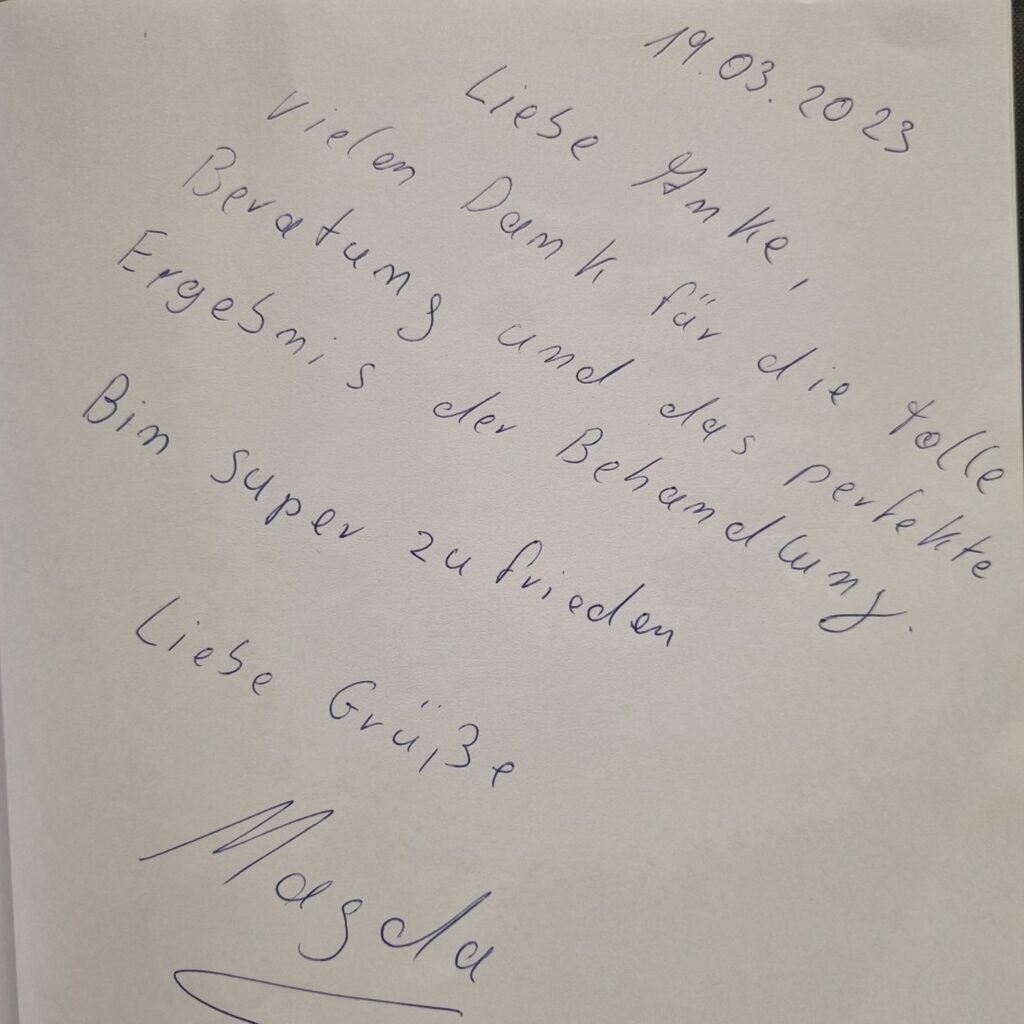 19.03.2023
Liebe Anke,
Vielen Dank für die tolle
Beratung und das perfekte
Ergebnis der Behandlung.
Bin super zufrieden
Liebe Grüße
Magda